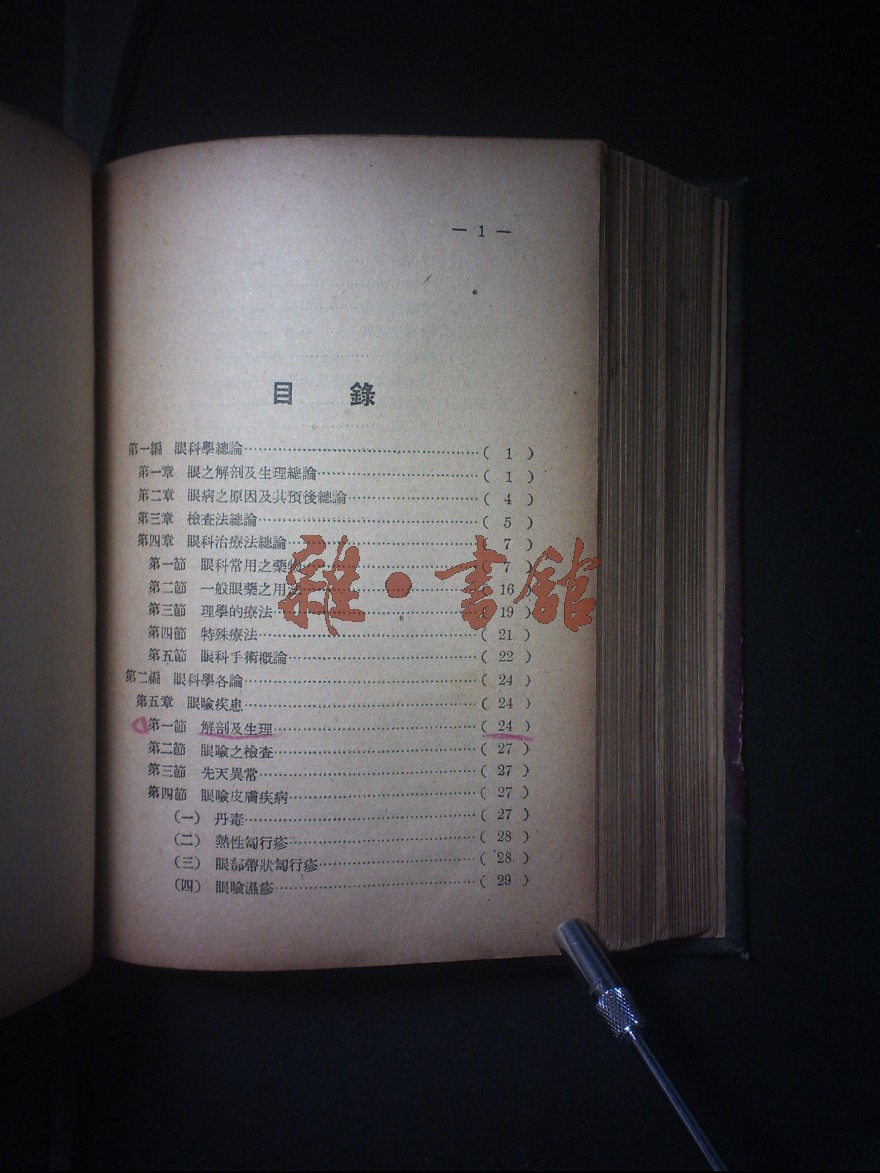 — 1 —
目 錄
第一編 眼科學總論……………………………( 1 )
第一章 眼之解剖及生理總論……………………( 1 )
第二章 眼病之原因及其預後總論………………( 4 )
第三章 檢查法總論……………………………( 5 )
第四章 眼科治療法總論…………………………( 7 )
第一節 眼科常用之藥物…………………………( 7 )
第二節 一般眼藥之用法…………………………( 16 )
第三節 理學的療法………………………………( 19 )
第四節 特殊療法…………………………………( 21 )
第五節 眼科手術概論……………………………( 22 )
第二編 眼科學各論………………………………( 24 )
第五章 眼瞼疾患…………………………………( 24 )
第一節 解剖及生理………………………………( 24 )
第二節 眼瞼之檢查………………………………( 27 )
第三節 先天異常…………………………………( 27 )
第四節 眼瞼皮膚疾病……………………………( 27 )
(一) 丹毒…………………………………………( 27 )
(二) 熱性匐行疹…………………………………( 28 )
(三) 眼部帶狀匐行疹……………………………( 28 )
(四) 眼瞼濕疹……………………………………( 29 )
雜·書館